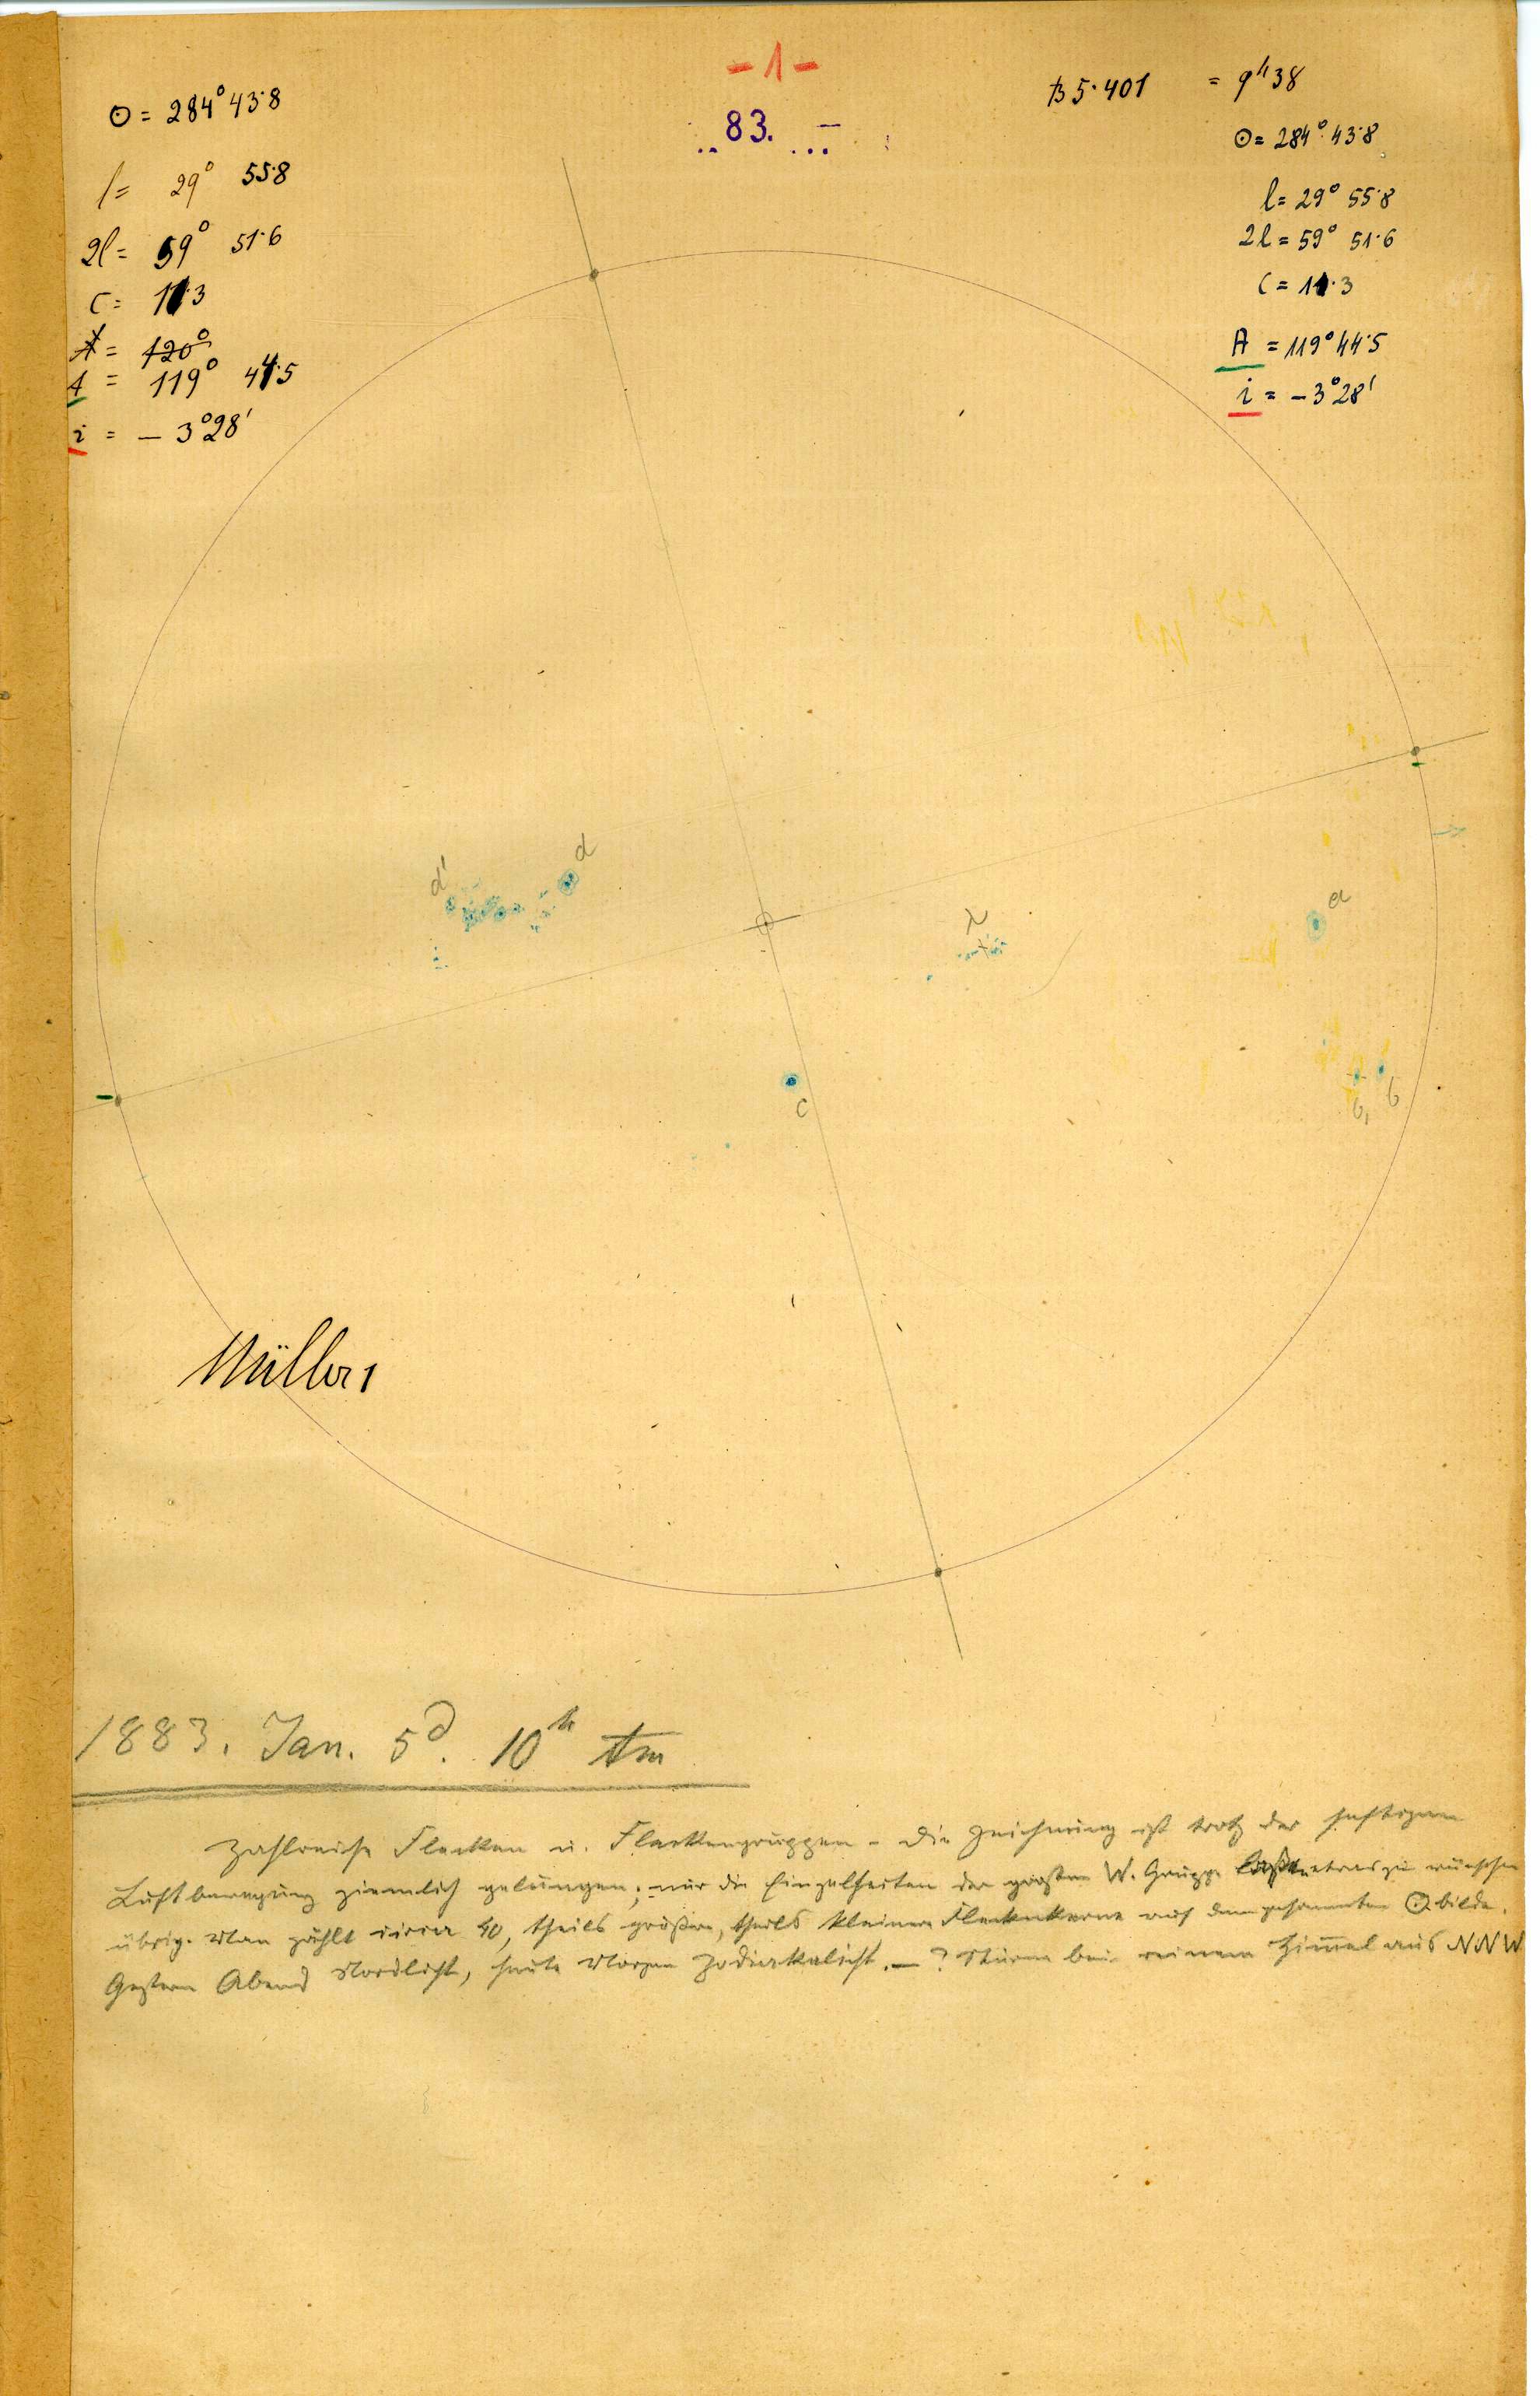 - 1 -
83.
☉ = 284° 43·8
l = 29° 55·8
2l = 59° 51·6
C = 11·3
A = 120°
A = 119° 44·5
i = – 3° 28'
B 5·401 = 9h 38
☉ = 284° 43·8
l = 29° 55·8
2l = 59° 51·6
C = 11·3
A = 119° 44·5
i = – 3° 28'
d' d
λ a
c b, b
Müller 1
1883. Jan. 5d. 10h Am
Zahlreiche Flecken u. Fleckengruppen – Die Zeichnung ist trotz der heftigen
Luftbewegung ziemlich gelungen; nur die Einzelheiten der großen W. Gruppe etwas zu wünschen
übrig. Man zählt circa 40, theils größere, theils kleinere Fleckenkerne auf dem gesammten ☉bilde.
Gestern Abend Nordlicht, heute Morgen Zodiakalicht. – ? Sturm bei reinem Himmel aus NNW